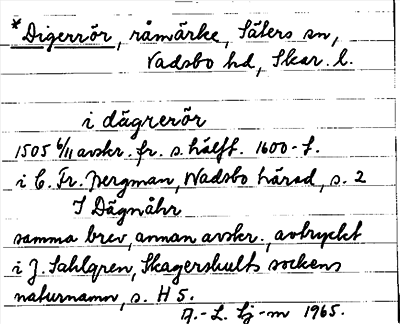 *Digerrör, råmärke, Säters sn,
Vadsbo hd, Skar. l.
i dägrerör
1505 6/11 avskr. fr. s. hälft. 1600-t.
i C. Fr. Bergman, Wadsbo härad, s. 2
I Dägnåhr
samma brev, annan avskr., avtryckt
i J. Sahlgren, Skagershults sockens
naturnamn, s. H 5.
1965.